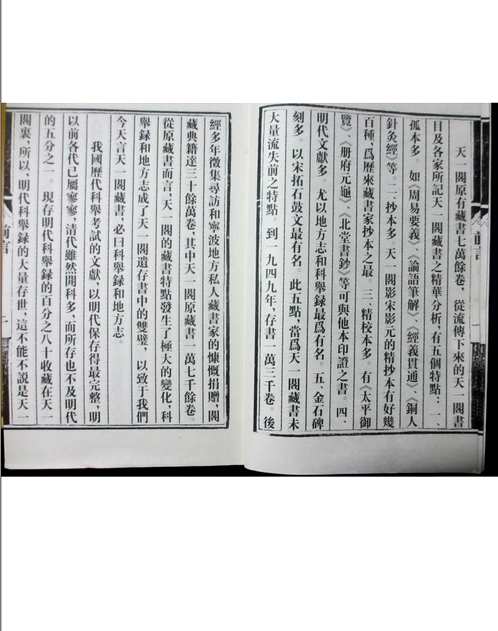 天一閣原有藏書七萬餘卷，從流傳下來的天一閣書
目及各家所記天一閣藏書之精華分析，有五個特點：一、
孤本多，如《周易要義》、《論語筆解》、《經義貫通》、《銅人
針灸經》等。二、抄本多，天一閣影宋影元的精抄本有好幾
百種，爲歷來藏書家抄本之最。三、精校本多，有《太平御
覽》、《册府元龜》、《北堂書鈔》等可與他本印證之書。四、
明代文獻多，尤以地方志和科舉録最爲有名。五、金石碑
刻多，以宋拓石鼓文最有名。此五點，當爲天一閣藏書未
大量流失前之特點。到一九四九年，存書一萬三千卷。後
經多年徵集尋訪和寧波地方私人藏書家的慷慨捐贈，閣
藏典籍達三十餘萬卷，其中天一閣原藏書一萬七千餘卷。
從原藏書而言，天一閣的藏書特點發生了極大的變化，科
舉録和地方志成了天一閣遺存書中的雙璧，以致于我們
今天言天一閣藏書，必曰科舉録和地方志。
我國歷代科舉考試的文獻，以明代保存得最完整，明
以前各代已屬寥寥，清代雖然開科多，而所存也不及明代
的五分之一。現存明代科舉録的百分之八十收藏在天一
閣裏，所以，明代科舉録的大量存世，這不能不説是天一
前言